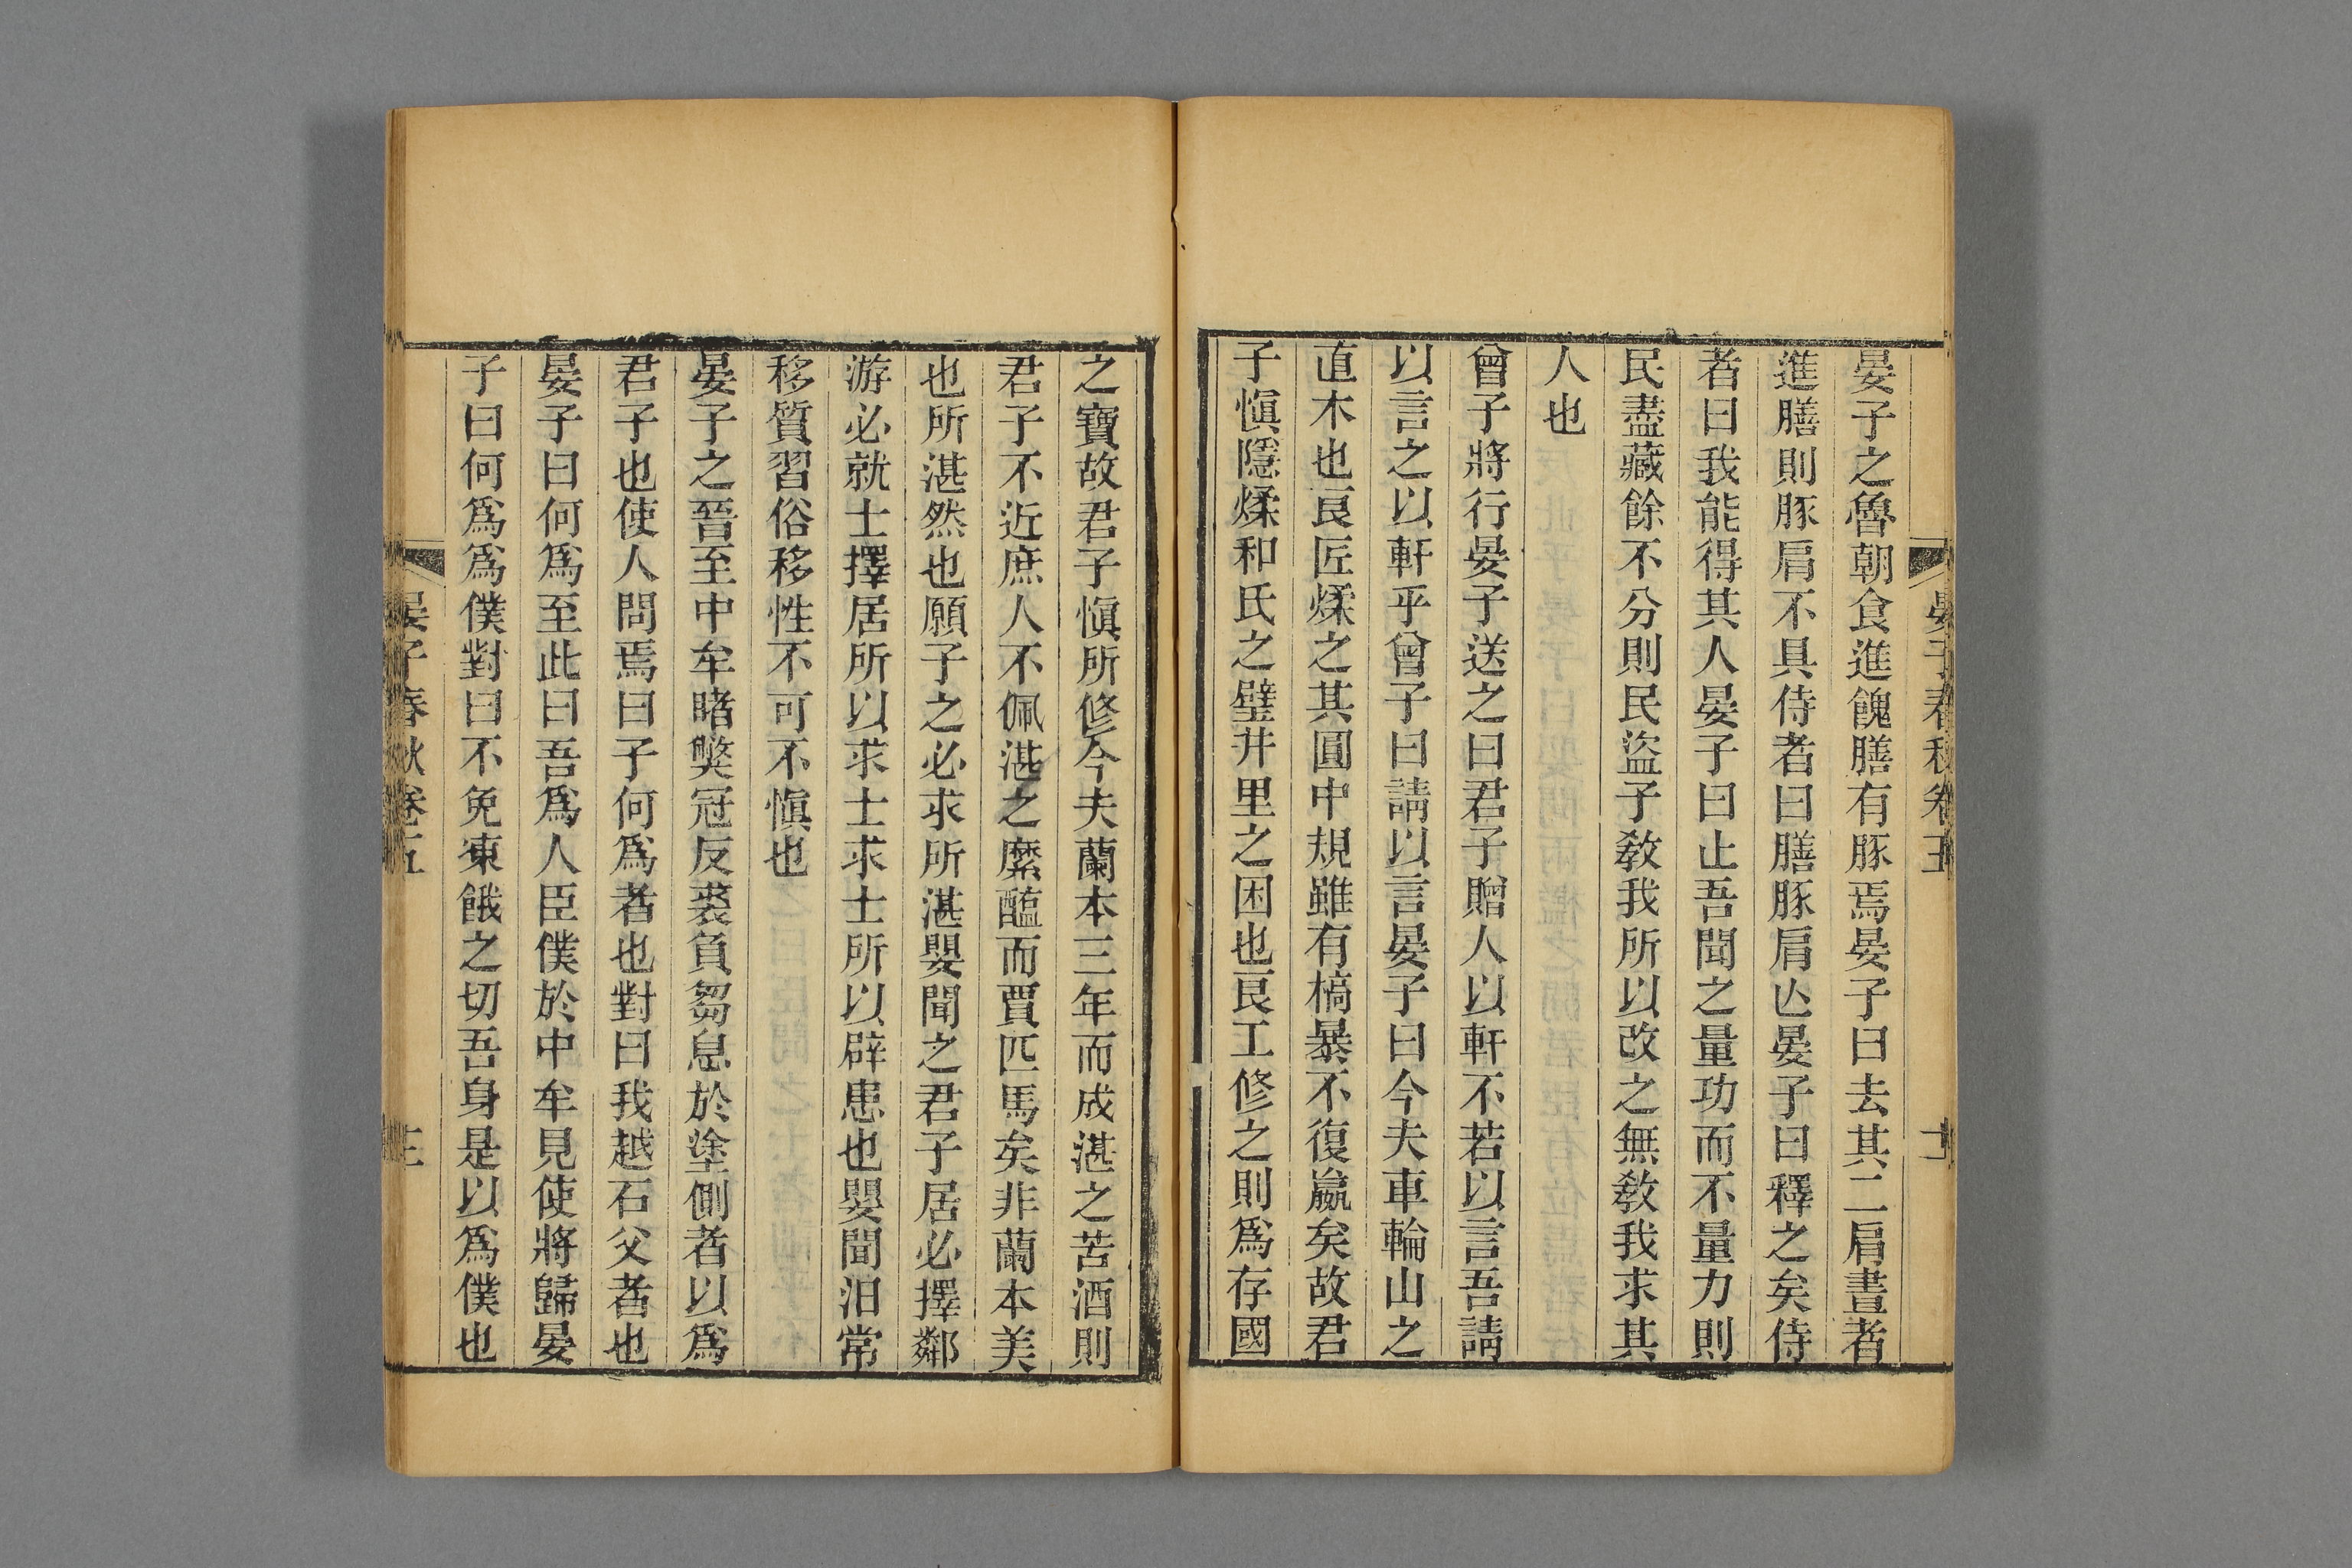 晏子春秋卷五
晏子之魯朝食進餽膳有豚焉晏子曰去其二肩晝者
進膳則豚肩不具侍者曰膳豚肩亾晏子曰釋之矣侍
者曰我能得其人晏子曰止吾聞之量功而不量力則
民盡藏餘不分則民盜子敎我所以改之無敎我求其
人也
曾子將行晏子送之曰君子贈人以軒不若以言吾請
以言之以軒乎曾子曰請以言晏子曰今夫車輪山之
直木也良匠煣之其圓中規雖有槁暴不復嬴矣故君
子愼隱煣和氏之璧井里之困也良工修之則爲存國
之寶故君子愼所修今夫蘭本三年而成湛之苦酒則
君子不近庶人不佩湛之縻醢而賈匹馬矣非蘭本美
也所湛然也願子之必求所湛嬰聞之君子居必擇鄰
游必就士擇居所以求士求士所以辟患也嬰聞汩常
移質習俗移性不可不愼也
晏子之晉至中牟睹獘冠反裘負芻息於塗側者以爲
君子也使人問焉曰子何爲者也對曰我越石父者也
晏子曰何爲至此曰吾爲人臣僕於中牟見使將歸晏
子曰何爲爲僕對曰不免凍餓之切吾身是以爲僕也
晏子春秋卷五